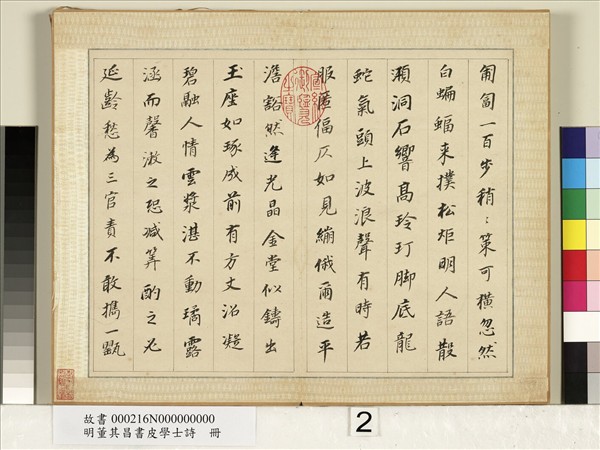 匍匐一百步稍〻策可橫忽然
白蝙蝠來撲松炬明人語散
澒洞石響高玲玎脚底龍
蛇氣頭上波浪聲有時若
服匿偪仄如見繃俄爾造平
澹豁然逢光晶金堂似鑄出
玉座如琢成前有方丈沼凝
碧融人情雲漿湛不動璚露
涵而馨漱之恐减筭酌之必
延齡愁為三官責不敢攜一甖
故書 000216N000000000
明董其昌書皮學士詩 冊
2